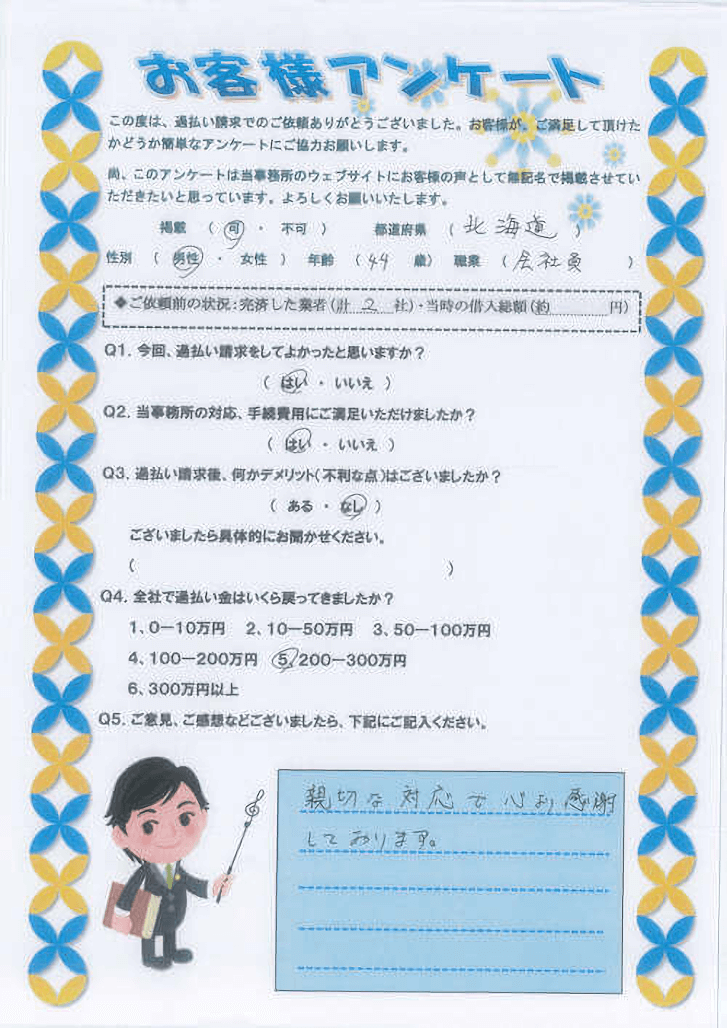 お客様アンケート
この度は、過払い請求でのご依頼ありがとうございました。お客様が、ご満足して頂けた
かどうか簡単なアンケートにご協力お願いします。
尚、このアンケートは当事務所のウェブサイトにお客様の声として無記名で掲載させてい
ただきたいと思っています。よろしくお願いいたします。
掲載 ( 可 ・ 不可 ) 都道府県 ( 北海道 )
性別 ( 男性 ・ 女性 ) 年齢 ( 44 歳) 職業 ( 会社員 )
◆ご依頼前の状況:完済した業者(計 2 社)・当時の借入総額(約 円)
Q1. 今回、過払い請求をしてよかったと思いますか?
( はい ・ いいえ )
Q2. 当事務所の対応、手続費用にご満足いただけましたか?
( はい ・ いいえ )
Q3. 過払い請求後、何かデメリット(不利な点)はございましたか?
( ある ・ なし )
ございましたら具体的にお聞かせください。
( )
Q4. 全社で過払い金はいくら戻ってきましたか?
1、0ー10万円 2、10ー50万円 3、50ー100万円
4、100ー200万円 5、200ー300万円
6、300万円以上
Q5. ご意見、ご感想などございましたら、下記にご記入ください。
親切な対応で心より感謝
しております。